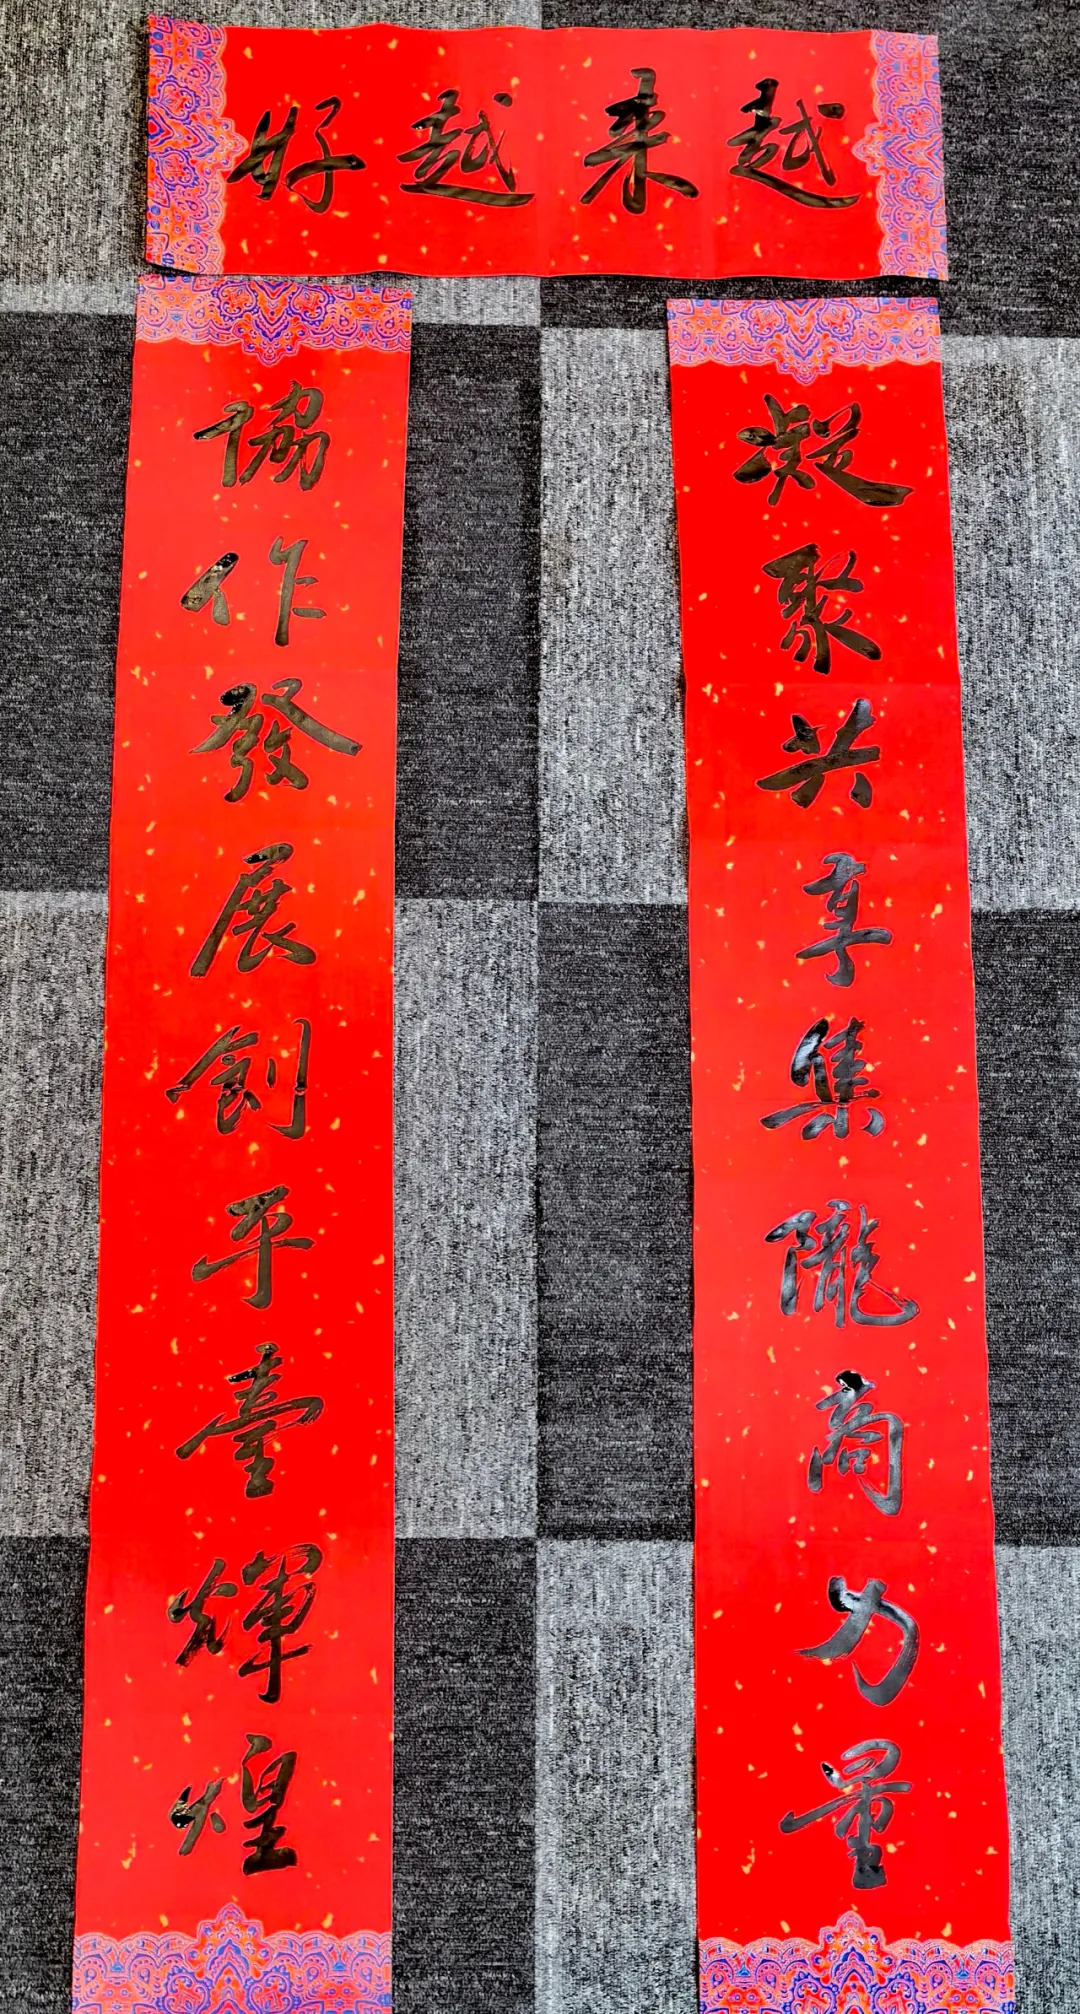 越来越好
凝聚共享集隴商力量
協作發展創平臺輝煌